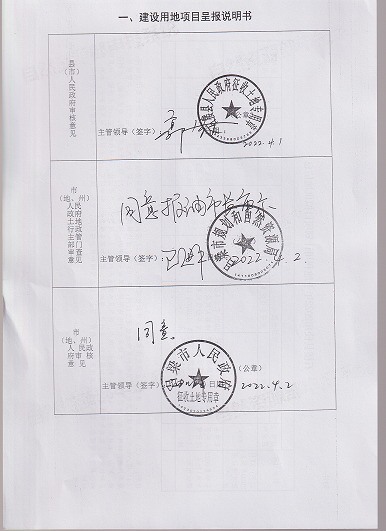 一、建设用地项目呈报说明书
县
(市)
人民
政府
审核
意见
人民政府征收土地专用章
主管领导（签字） （公章）
2022.4.1
市
(地、州)
人民
政府
土地
行政
主管
部门
审查
意见
同意报
吕梁市规划和自然资源局
主管领导（签字） 2022.4.2
市
(地、州)
人民政
府审核
意见
同意
吕梁市人民政府
征收土地专用章
主管领导（签字） （公章）
2022.4.2